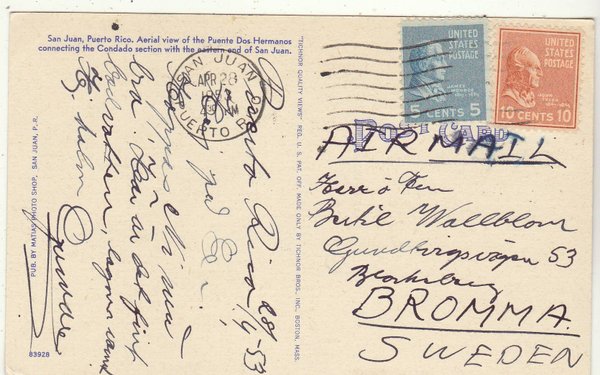 San Juan, Puerto Rico. Aerial view of the Puente Dos Hermanos
connecting the Condado section with the eastern end of San Juan.
SAN JUAN
APR 28
AM
PUERTO RICO
UNITED
STATES
POSTAGE
JAMES
MONROE
5 CENTS 5
UNITED
STATES
POSTAGE
JOHN
TYLER
10 CENTS 10
POST CARD
AIRMAIL
Herr o Fru
Bertil Wallblom
Grundbergsvägen 53
BROMMA.
SWEDEN
Puerto Rico 28/4-53
på
bra. Här är det fint
badvatten, lagom varmt
Gunnar
"TICHNOR QUALITY VIEWS" REG. U. S. PAT. OFF. MADE ONLY BY TICHNOR BROS., INC., BOSTON, MASS.
PUB. BY MATIAS PHOTO SHOP, SAN JUAN, P.R.
83928